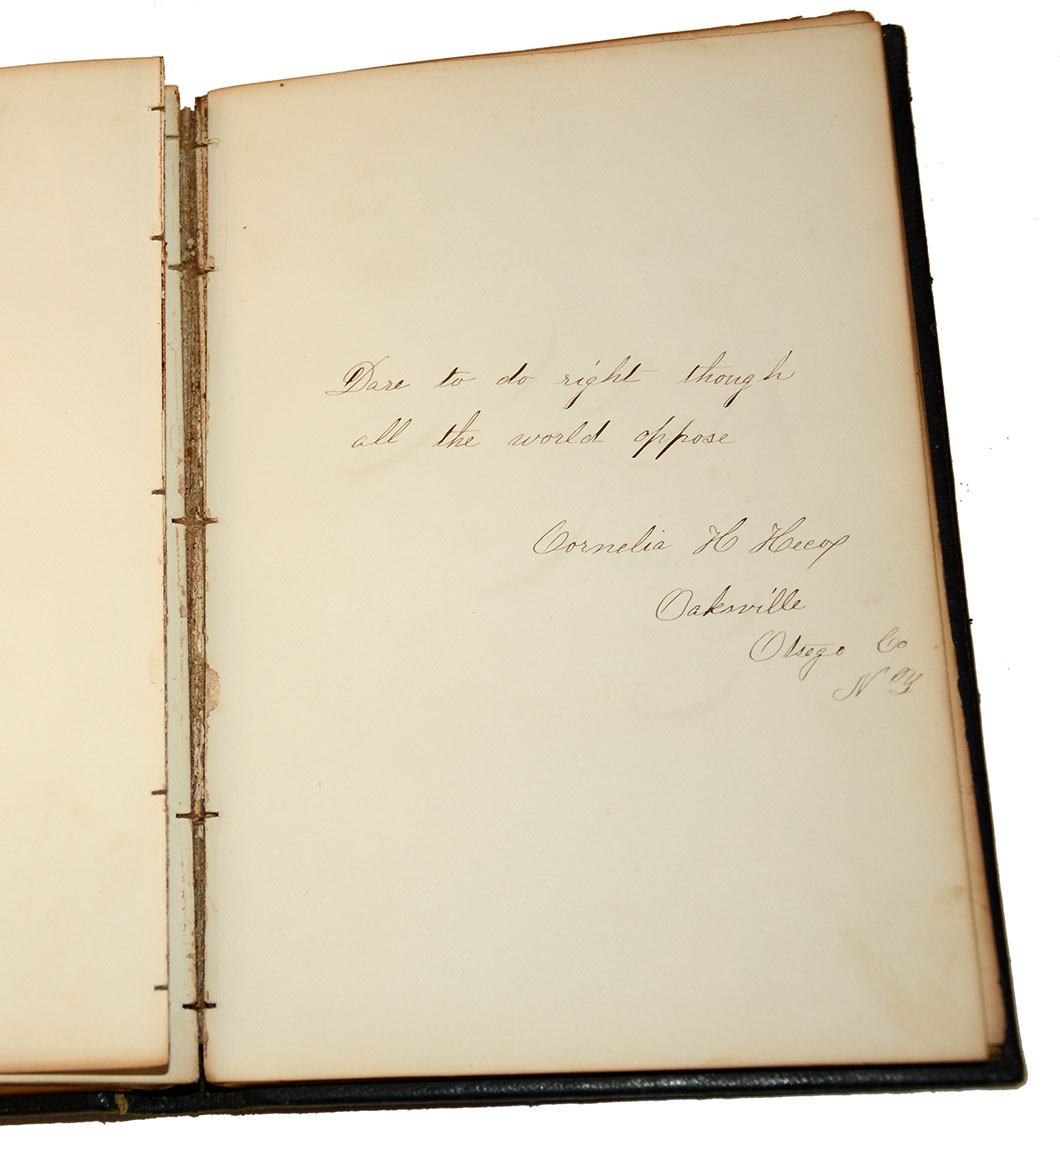 Dare to do right though
all the world oppose
Cornelia H Hecox
Oaksville
Otsego Co
N Y